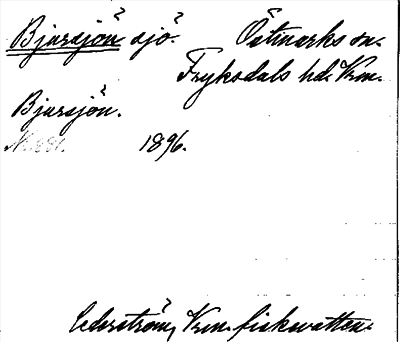 Bjursjön sjö. Östmarks sn.
Fryksdals hd. Vrm.
Bjursjön.
1896.
Cederström, Vrm. fiskvatten.